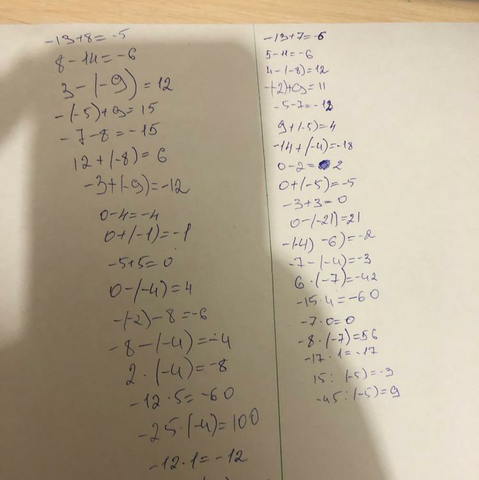 -13+8=-5
8-14=-6
3-(-9)=12
-(-5)+9=15
-7-8=-15
12+(-8)=6
-3+(-9)=-12
0-4=-4
0+(-1)=-1
-5+5=0
0-(-4)=4
-(-2)-8=-6
-8-(-4)=-4
2·(-4)=-8
-12·5=-60
-25·(-4)=100
-12·1=-12
-13+7=-6
5-11=-6
4-(-8)=12
-(-2)+9=11
-5-7=-12
9+(-5)=4
-14+(-4)=-18
0-2=2
0+(-5)=-5
-3+3=0
0-(-21)=21
-(-4) -6)=-2
-7-(-4)=-3
6·(-7)=-42
-15·4=-60
-7·0=0
-8·(-7)=56
-17·1=-17
15:(-5)=-3
-45:(-5)=9